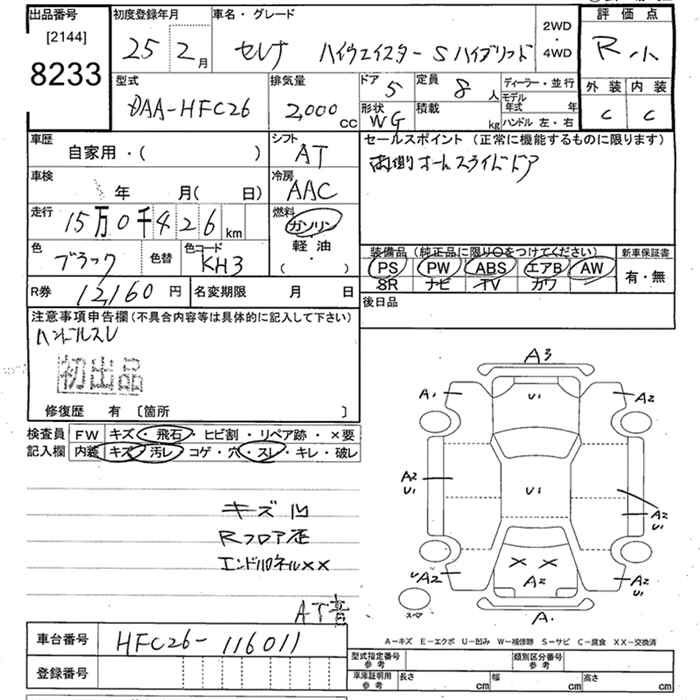 出品番号 [2144] 8233
初度登録年月 25年 2月
車名・グレード セレナ ハイウェイスター S ハイブリッド
2WD・4WD
評価点 R 小
外装 C 内装 C
型式 DAA-HFC26
排気量 2,000 CC
ドア 5
定員 8人
形状 WG
積載 kg
ディーラー・並行
モデル年式 年
ハンドル 左・右
車歴 自家用・( )
シフト AT
セールスポイント (正常に機能するものに限ります)
両側オートスライドドア
車検 年 月( 日)
冷房 AAC
走行 15万0千426km
燃料 ガソリン 軽油 ( ・ )
色 ブラック 色替 色コード KH3
装備品 (純正品に限り○をつけてください)
PS PW ABS エアB AW
SR ナビ TV カワ
新車保証書 有・無
R券 12,160円
名変期限 月 日
後日品
注意事項申告欄 (不具合内容等は具体的に記入して下さい)
ハンドルスレ
初出品
修復歴 有 [箇所 ]
検査員記入欄
FW キズ・飛石・ヒビ割・リペア跡・×要
内装 キズ・汚レ・コゲ・穴・スレ・キレ・破レ
キズ凹
Rフロア歪
エンドパネル××
AT音
A3
A1 U1 A2
A2 U1 U1 A2
A2 U1
UA2 × × A2 A2 U1
スペア A
A-キズ E-エクボ U-凹み W-補修跡 S-サビ C-腐食 XX-交換済
車台番号 HFC26-116011
登録番号
型式指定番号 参考 類別区分番号 参考
車庫証明用 参考 長さ cm 幅 cm 高さ cm